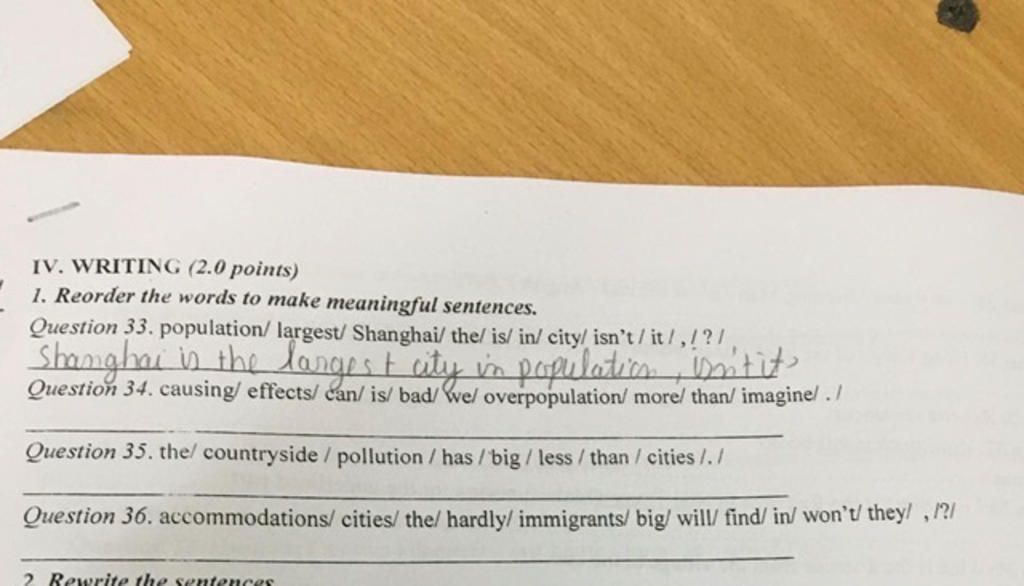 IV. WRITING (2.0 points)
1. Reorder the words to make meaningful sentences.
Question 33. population/ largest/ Shanghai/ the/ is/ in/ city/ isn't / it / , / ? /
Shanghai is the largest city in population, isn't it?
Question 34. causing/ effects/ can/ is/ bad/ we/ overpopulation/ more/ than/ imagine/ . /
Question 35. the/ countryside / pollution / has / big / less / than / cities /. /
Question 36. accommodations/ cities/ the/ hardly/ immigrants/ big/ will/ find/ in/ won't/ they/ , /?/
2. Rewrite the sentences